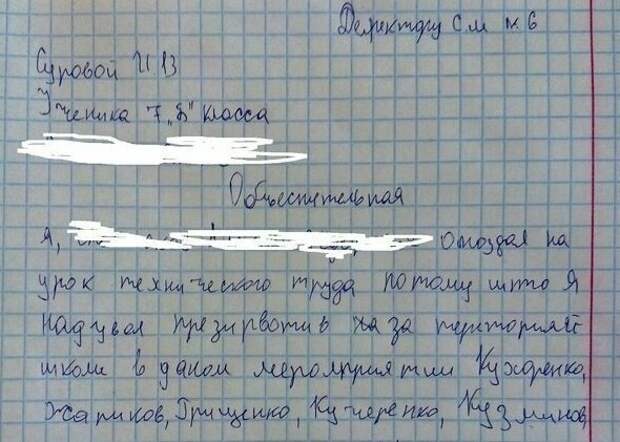 Деректору с.м N 6
Суровой И В
Ученика 7 "Б" класса
Объеснительная
Я, опоздал на
урок технического труда потому што я
надувал презирвотив за територияй
школи в даном мероприятии Кухаренко,
Жариков, Грищенко, Кучеренко, Кузминов,